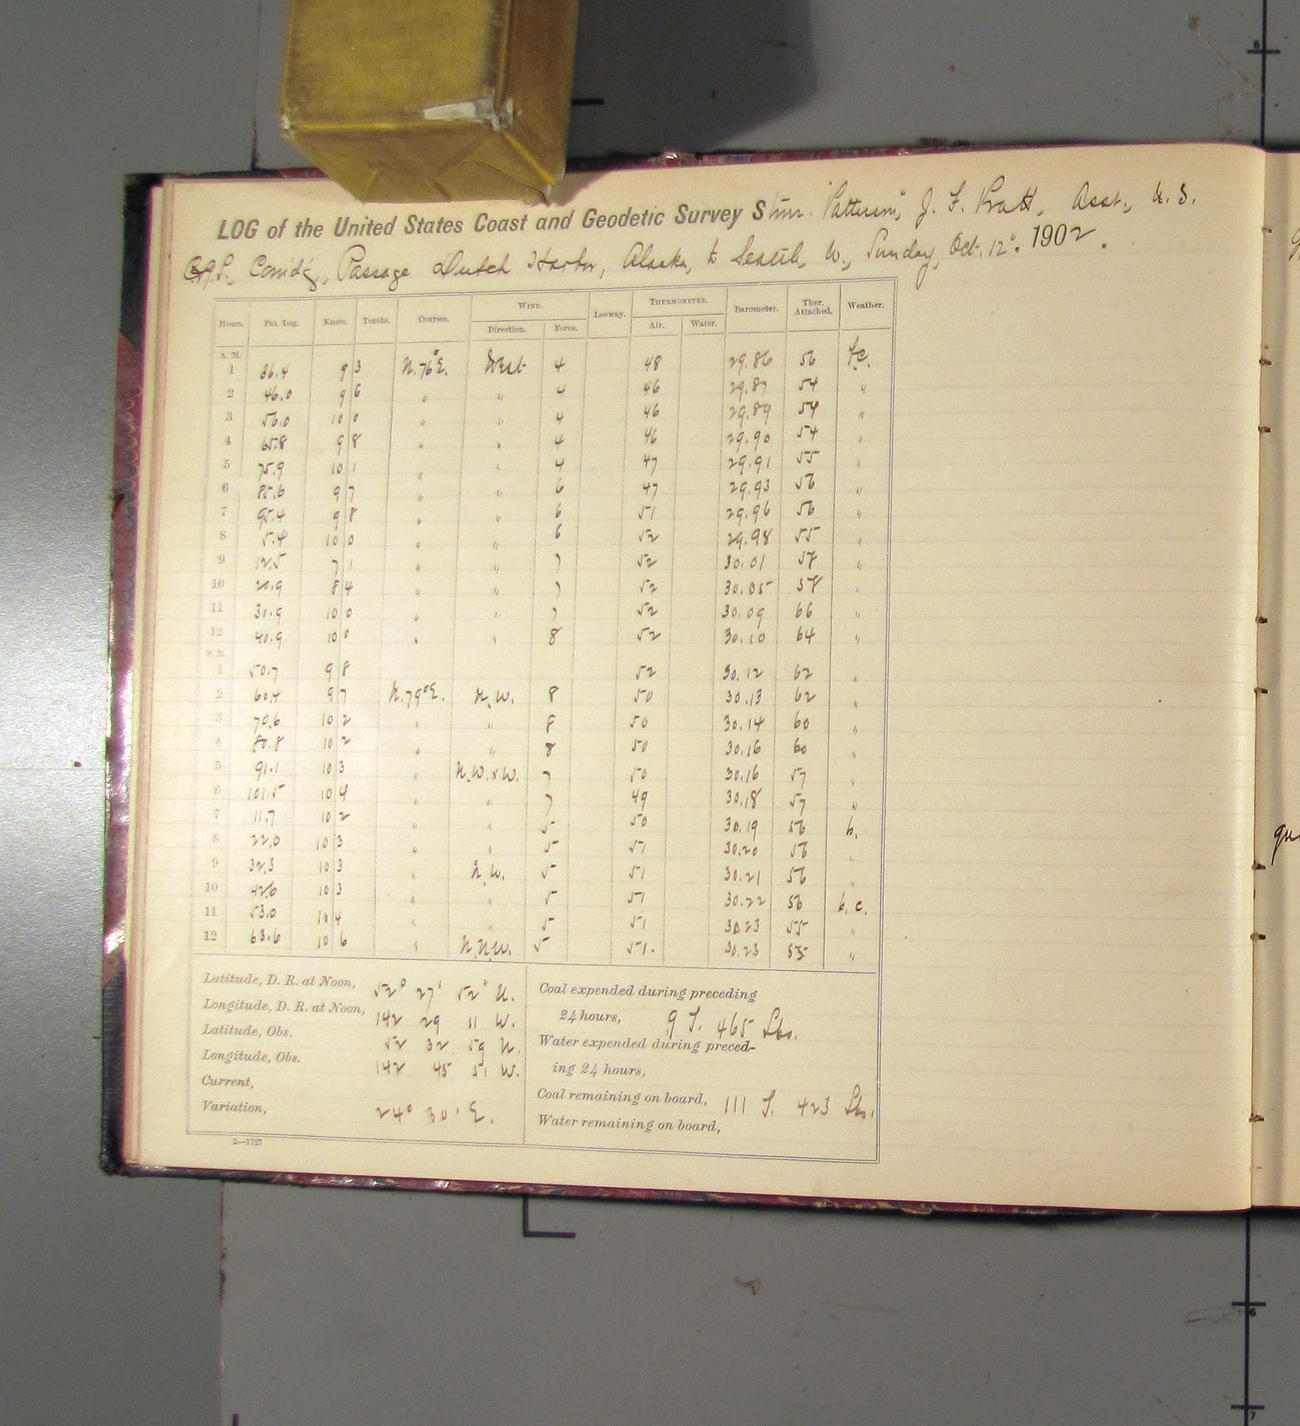 LOG of the United States Coast and Geodetic Survey Stmr. "Patterson", J. F. Pratt, Asst., U. S.
C.&G.S., Comd'g, Passage Dutch Harbor, Alaska, to Seattle, W., Sunday, Oct. 12". 1902.
Hours. Pat. Log. Knots. Tenths. Courses. Wind. Leeway. Thermometer. Barometer. Ther. Attached. Weather.
Direction. Force. Air. Water.
A. M.
1 36.4 9 3 N.76°E. West 4 48 29.86 56 f.c.
2 46.0 9 6 " " 4 46 29.87 54 "
3 56.0 10 0 " " 4 46 29.89 54 "
4 65.8 9 8 " " 4 46 29.90 54 "
5 75.9 10 1 " " 4 47 29.91 55 "
6 85.6 9 7 " " 6 47 29.93 56 "
7 95.4 9 8 " " 6 51 29.96 56 "
8 5.4 10 0 " " 6 52 29.98 55 "
9 12.5 7 1 " " 7 52 30.01 57 "
10 20.9 8 4 " " 7 52 30.05 58 "
11 30.9 10 0 " " 7 52 30.09 66 "
12 40.9 10 0 " " 8 52 30.10 64 "
P. M.
1 50.7 9 8 52 30.12 62 "
2 60.4 9 7 N.79°E. N.W. 8 50 30.13 62 "
3 70.6 10 2 " " 8 50 30.14 60 "
4 80.8 10 2 " " 8 50 30.16 60 "
5 91.1 10 3 " N.W.xW. 7 50 30.16 57 "
6 101.5 10 4 " " 7 49 30.18 57 "
7 11.7 10 2 " " 5 50 30.19 56 b.
8 22.0 10 3 " " 5 51 30.20 56 "
9 32.3 10 3 " N.W. 5 51 30.21 56 "
10 42.6 10 3 " " 5 51 30.22 56 b.c.
11 53.0 10 4 " " 5 51 30.23 55 "
12 63.6 10 6 " N.N.W. 5 51. 30.23 55 "
Latitude, D. R. at Noon, 52° 27' 52" N.
Longitude, D. R. at Noon, 142 29 11 W.
Latitude, Obs. 52 32 59 N.
Longitude, Obs. 142 45 51 W.
Current,
Variation, 24° 30' E.
Coal expended during preceding
24 hours, 9 T. 465 Lbs.
Water expended during preced-
ing 24 hours,
Coal remaining on board, 111 T. 423 Lbs.
Water remaining on board,
2—1727
5
6
7